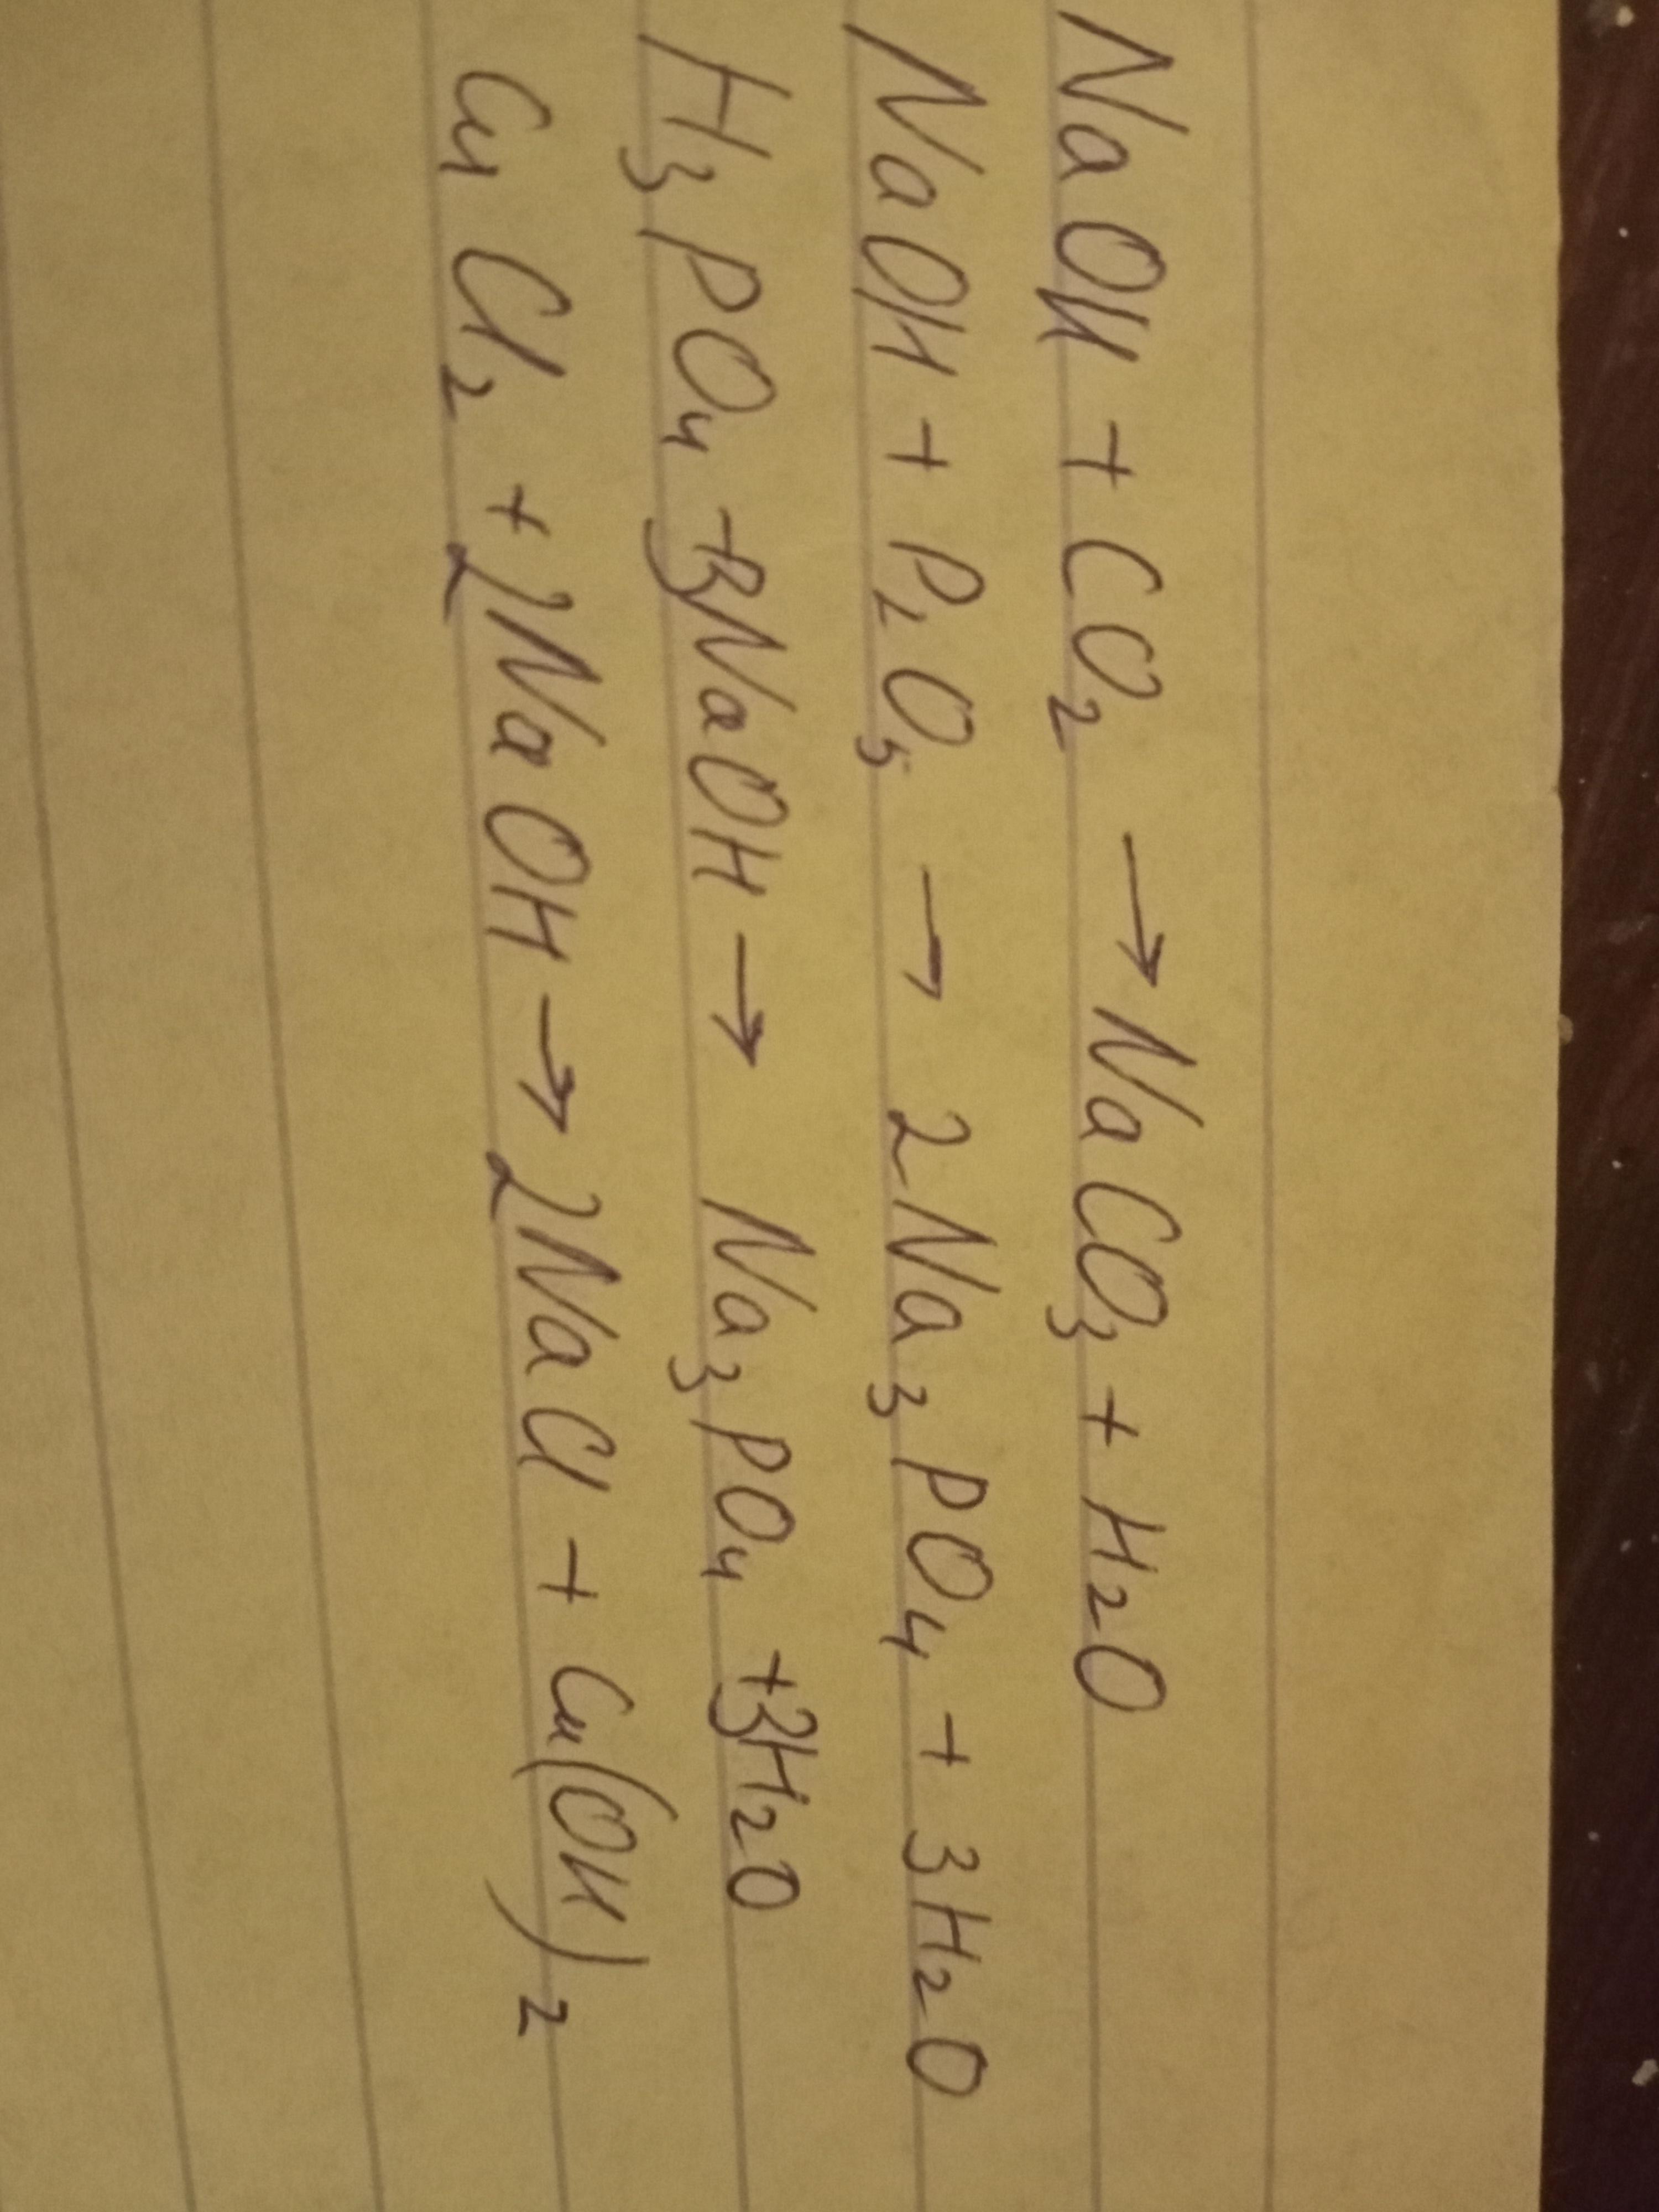 NaOH + CO₂ → NaCO₃ + H₂O
NaOH + P₂O₅ → 2Na₃PO₄ + 3H₂O
H₃PO₄ + 3NaOH → Na₃PO₄ + 3H₂O
CuCl₂ + 2NaOH → 2NaCl + Cu(OH)₂